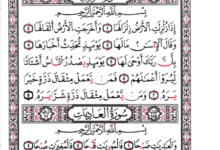 بِسْمِ اللَّهِ الرَّحْمَٰنِ الرَّحِيمِ
إِذَا زُلْزِلَتِ الْأَرْضُ زِلْزَالَهَا ۝ وَأَخْرَجَتِ الْأَرْضُ أَثْقَالَهَا ۝
وَقَالَ الْإِنْسَانُ مَا لَهَا ۝ يَوْمَئِذٍ تُحَدِّثُ أَخْبَارَهَا ۝
بِأَنَّ رَبَّكَ أَوْحَىٰ لَهَا ۝ يَوْمَئِذٍ يَصْدُرُ النَّاسُ أَشْتَاتًا
لِيُرَوْا أَعْمَالَهُمْ ۝ فَمَنْ يَعْمَلْ مِثْقَالَ ذَرَّةٍ خَيْرًا
يَرَهُ ۝ وَمَنْ يَعْمَلْ مِثْقَالَ ذَرَّةٍ شَرًّا يَرَهُ ۝
سُورَةُ الْعَادِيَاتِ
بِسْمِ اللَّهِ الرَّحْمَٰنِ الرَّحِيمِ
وَالْعَادِيَاتِ ضَبْحًا ۝ فَالْمُورِيَاتِ قَدْحًا ۝ فَالْمُغِيرَاتِ صُبْحًا